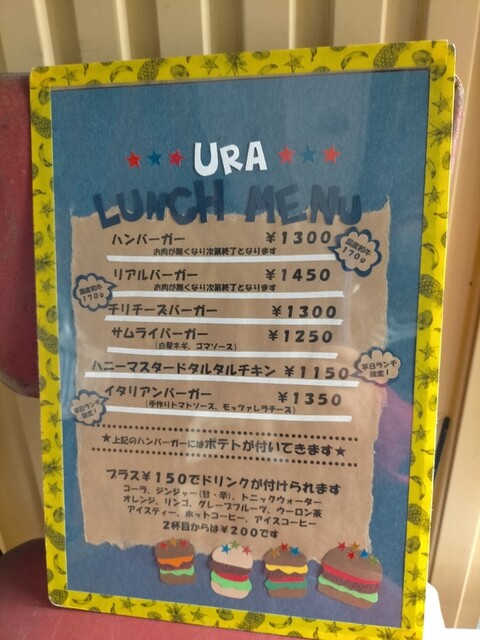 ★★★ URA ★★★
LUNCH MENU
ハンバーガー ￥1300
お肉が無くなり次第終了となります
国産和牛
170g
リアルバーガー ￥1450
お肉が無くなり次第終了となります
国産和牛
170g
チリチーズバーガー ￥1300
サムライバーガー ￥1250
(白髪ネギ、ゴマソース)
ハニーマスタードタルタルチキン ￥1150
平日ランチ
限定！
イタリアンバーガー ￥1350
(手作りトマトソース、モッツァレラチーズ)
平日ランチ
限定！
★上記のハンバーガーにはポテトが付いてきます★
プラス￥150でドリンクが付けられます
コーラ、ジンジャー(甘・辛)、トニックウォーター
オレンジ、リンゴ、グレープフルーツ、ウーロン茶
アイスティー、ホットコーヒー、アイスコーヒー
2杯目からは￥200です